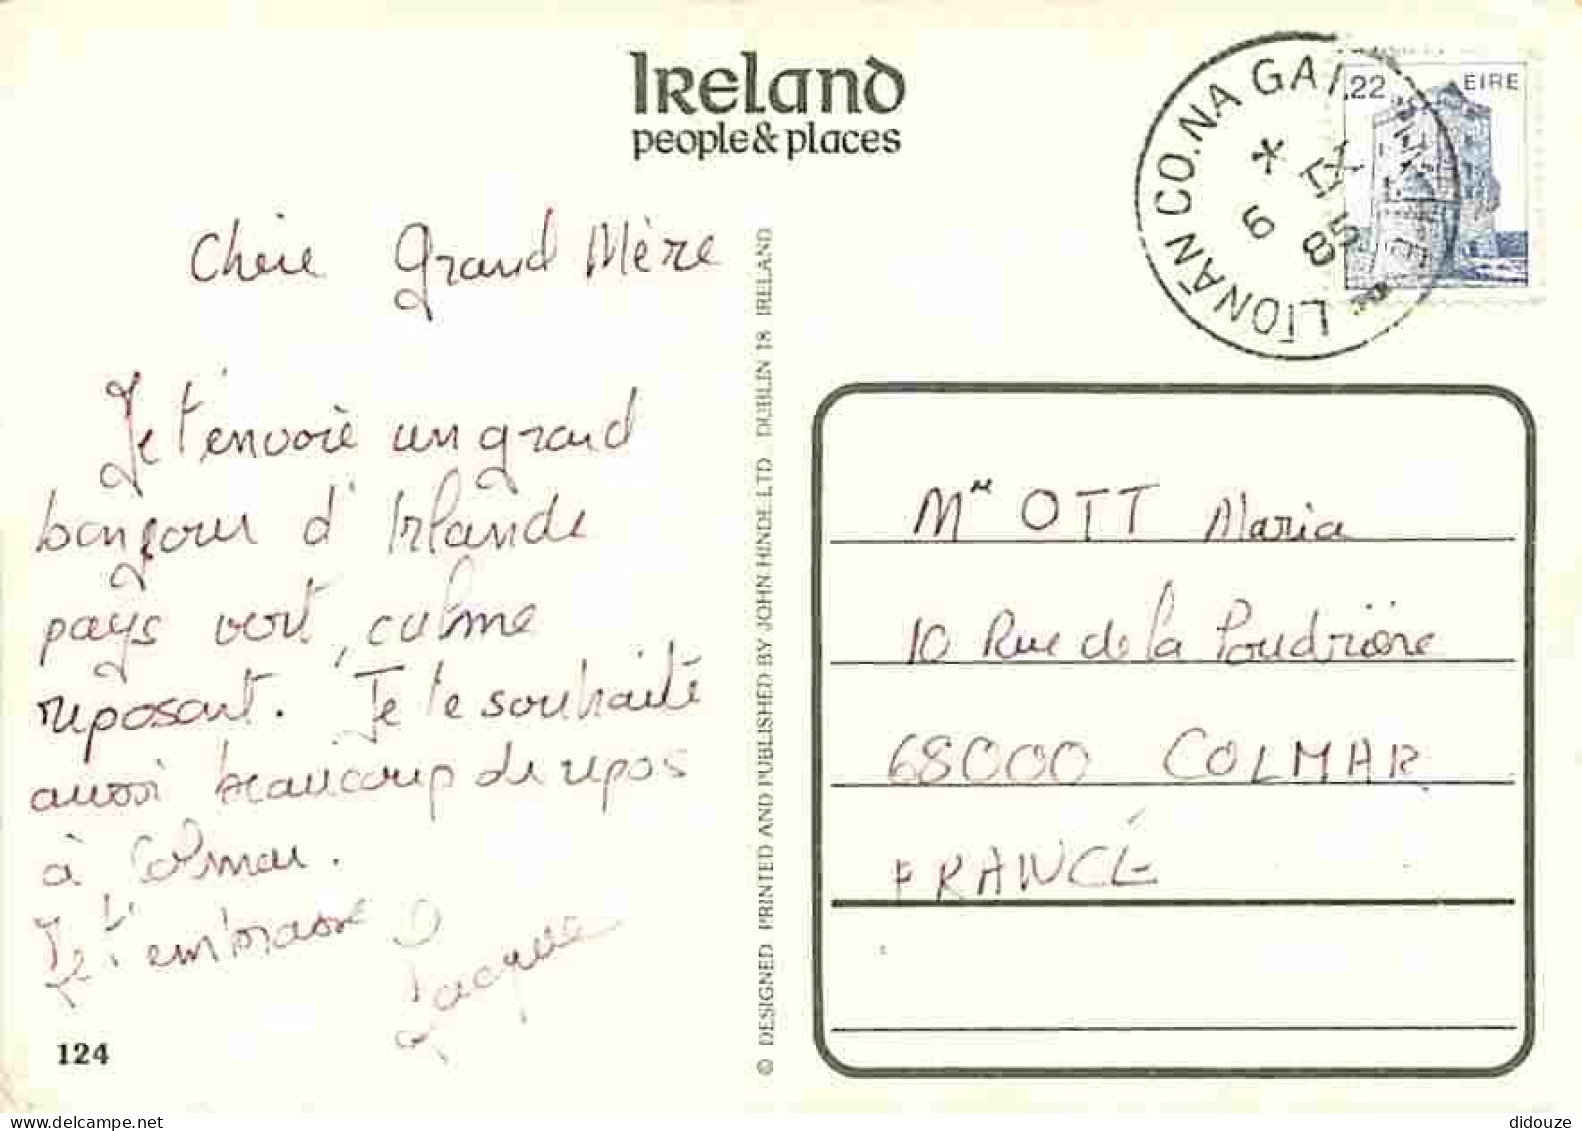 Ireland
people & places
LÍONÁN CO. NA GAI
6 IX 85
22
EIRE
Chère Grand Mère
Je t'envoie un grand
bonjour d'Irlande
pays vert, calme
reposant. Je te souhaite
aussi beaucoup de repos
à Colmar.
Je t'embrasse
124
© DESIGNED PRINTED AND PUBLISHED BY JOHN HINDE LTD DUBLIN 18 IRELAND
Mme OTT Maria
10 Rue de la Poudrière
68000 COLMAR
FRANCE
didouze